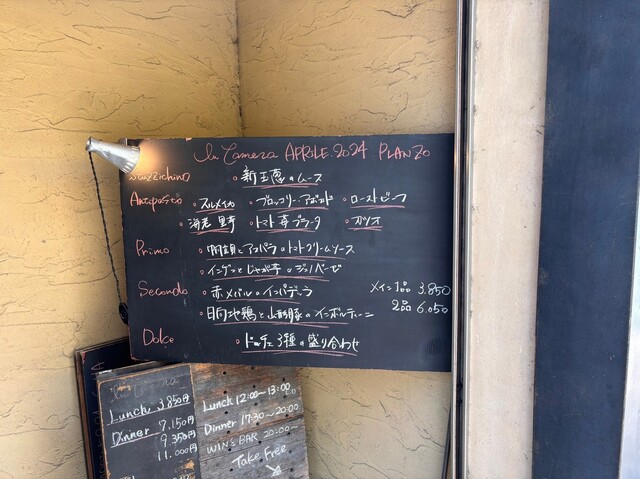 In Camera APRILE. 2024 PLANZO
Stuzzichino ・新玉葱のムース
Antipasto ・スルメイカ ・ブロッコリー、アボカド ・ローストビーフ
・海老 里芋 ・トマト 苺 ブラータ ・カツオ
Primo ・桐頭とアスパラのトマトクリームソース
・インゲンとじゃが芋のジェノベーゼ
Secondo ・赤メバルのインパデッラ メイン1品 3.850
・日向地鶏と山形豚のインボルティーニ 2品 6.050
Dolce ・ドルチェ3種の盛り合わせ
Lunch 3.850円
Dinner 7.150円
9.350円
11.000円
Lunch 12:00〜13:00
Dinner 17:30〜20:00
WINS BAR 20:00〜
Take Free